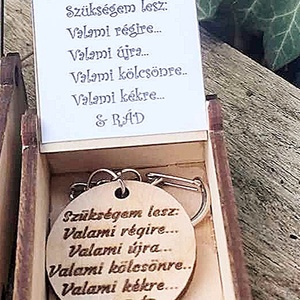 Szükségem lesz:
Valami régire...
Valami újra...
Valami kölcsönre..
Valami kékre...
& RÁD
Szükségem lesz:
Valami régire...
Valami újra...
Valami kölcsönre..
Valami kékre...